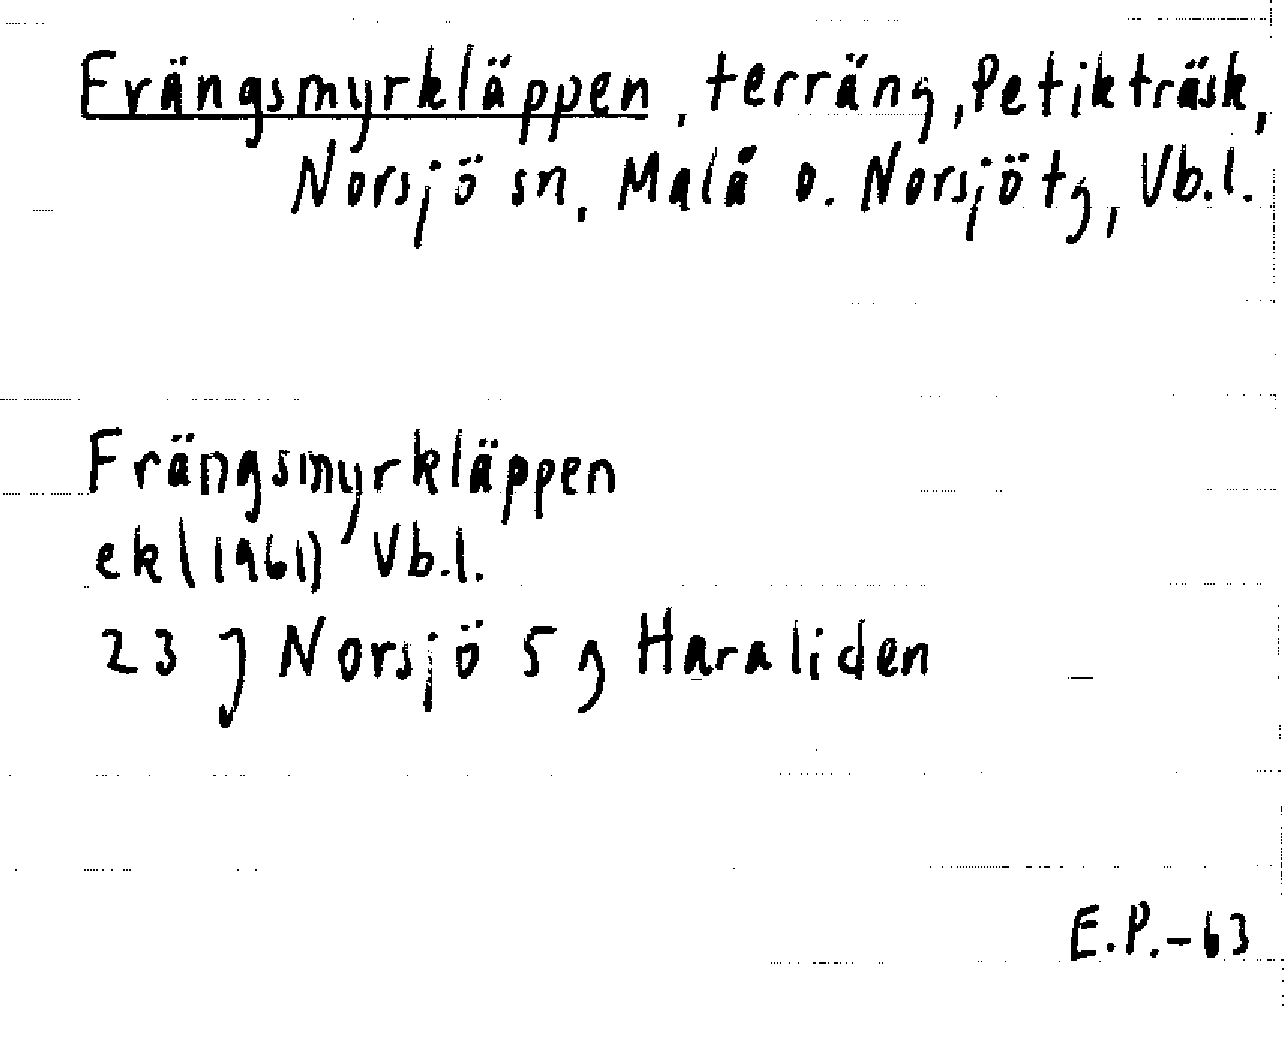 Frängsmyrkläppen, terräng, Petikträsk,
Norsjö sn, Malå o. Norsjö tg, Vb.l.
Frängsmyrkläppen
ek (1961) Vb.l.
23 J Norsjö 5 g Haraliden
E.P.-63